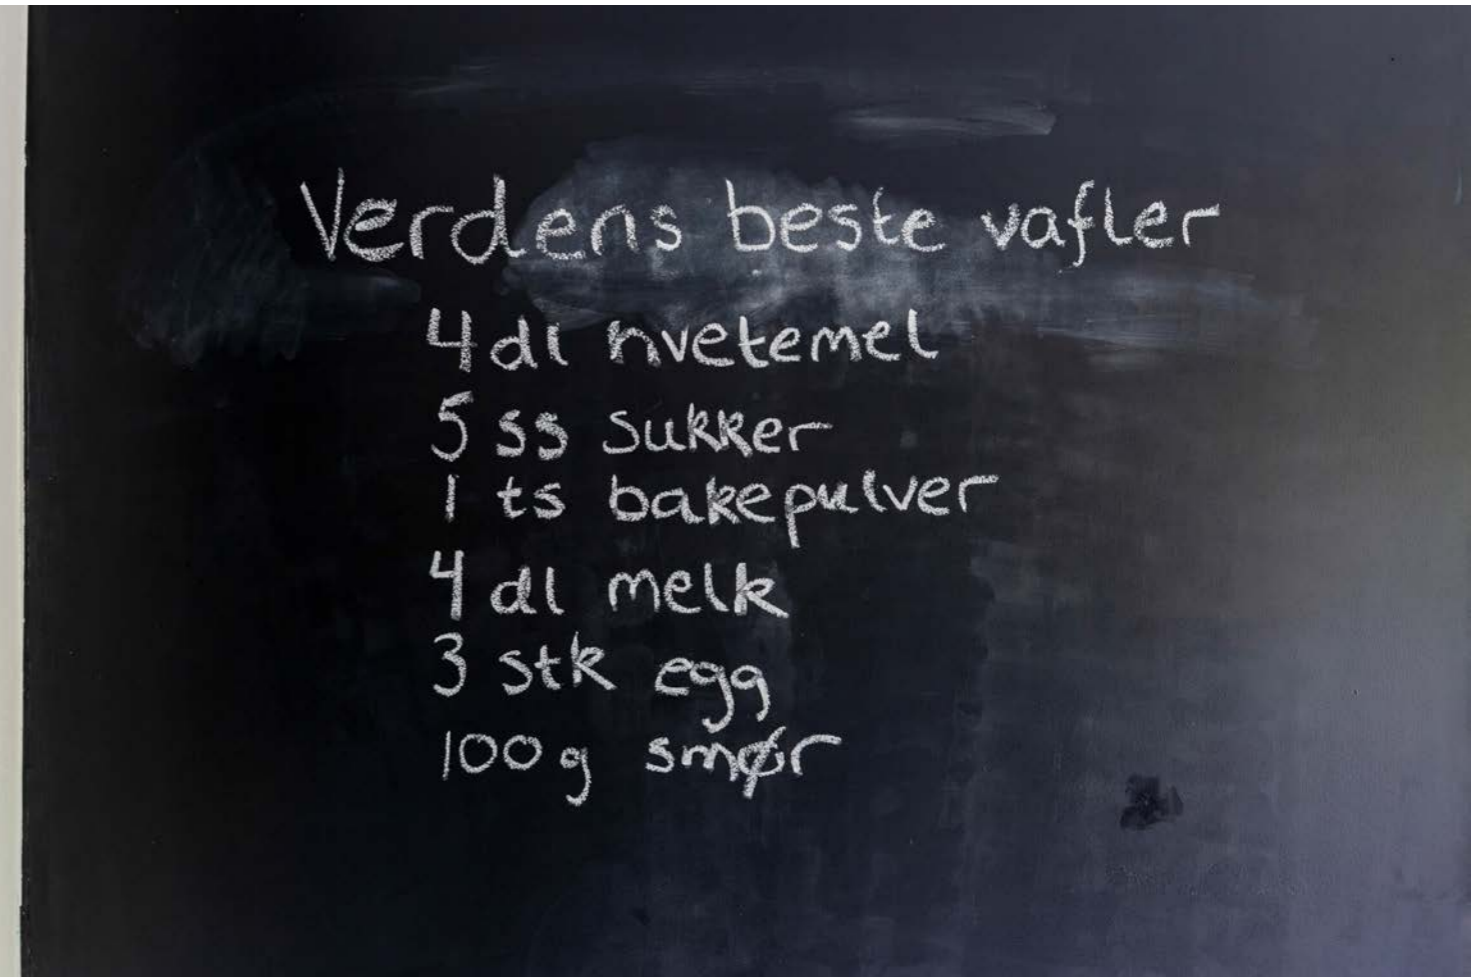 Verdens beste vafler
4 dl hvetemel
5 ss sukker
1 ts bakepulver
4 dl melk
3 stk egg
100 g smør